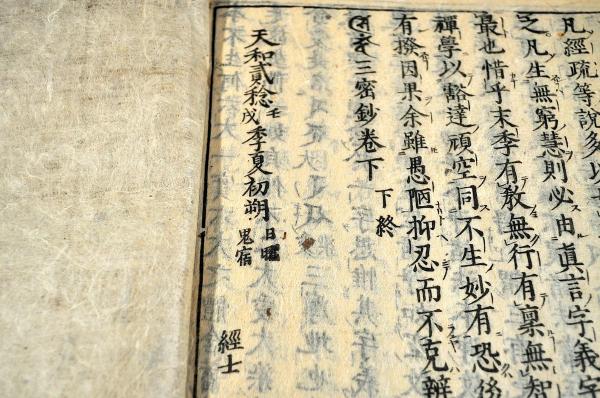 凡經疏等説多以
之凡生無窮慧則必由眞言字義字
最也惜乎末季有教無行有稟無智
禪學以豁達頑空同不生妙有恐後
有撥因果余雖愚陋抑忍而不克辨
三密鈔卷下
下終
天和貳稔壬戌季夏初朔日曜鬼宿
經士